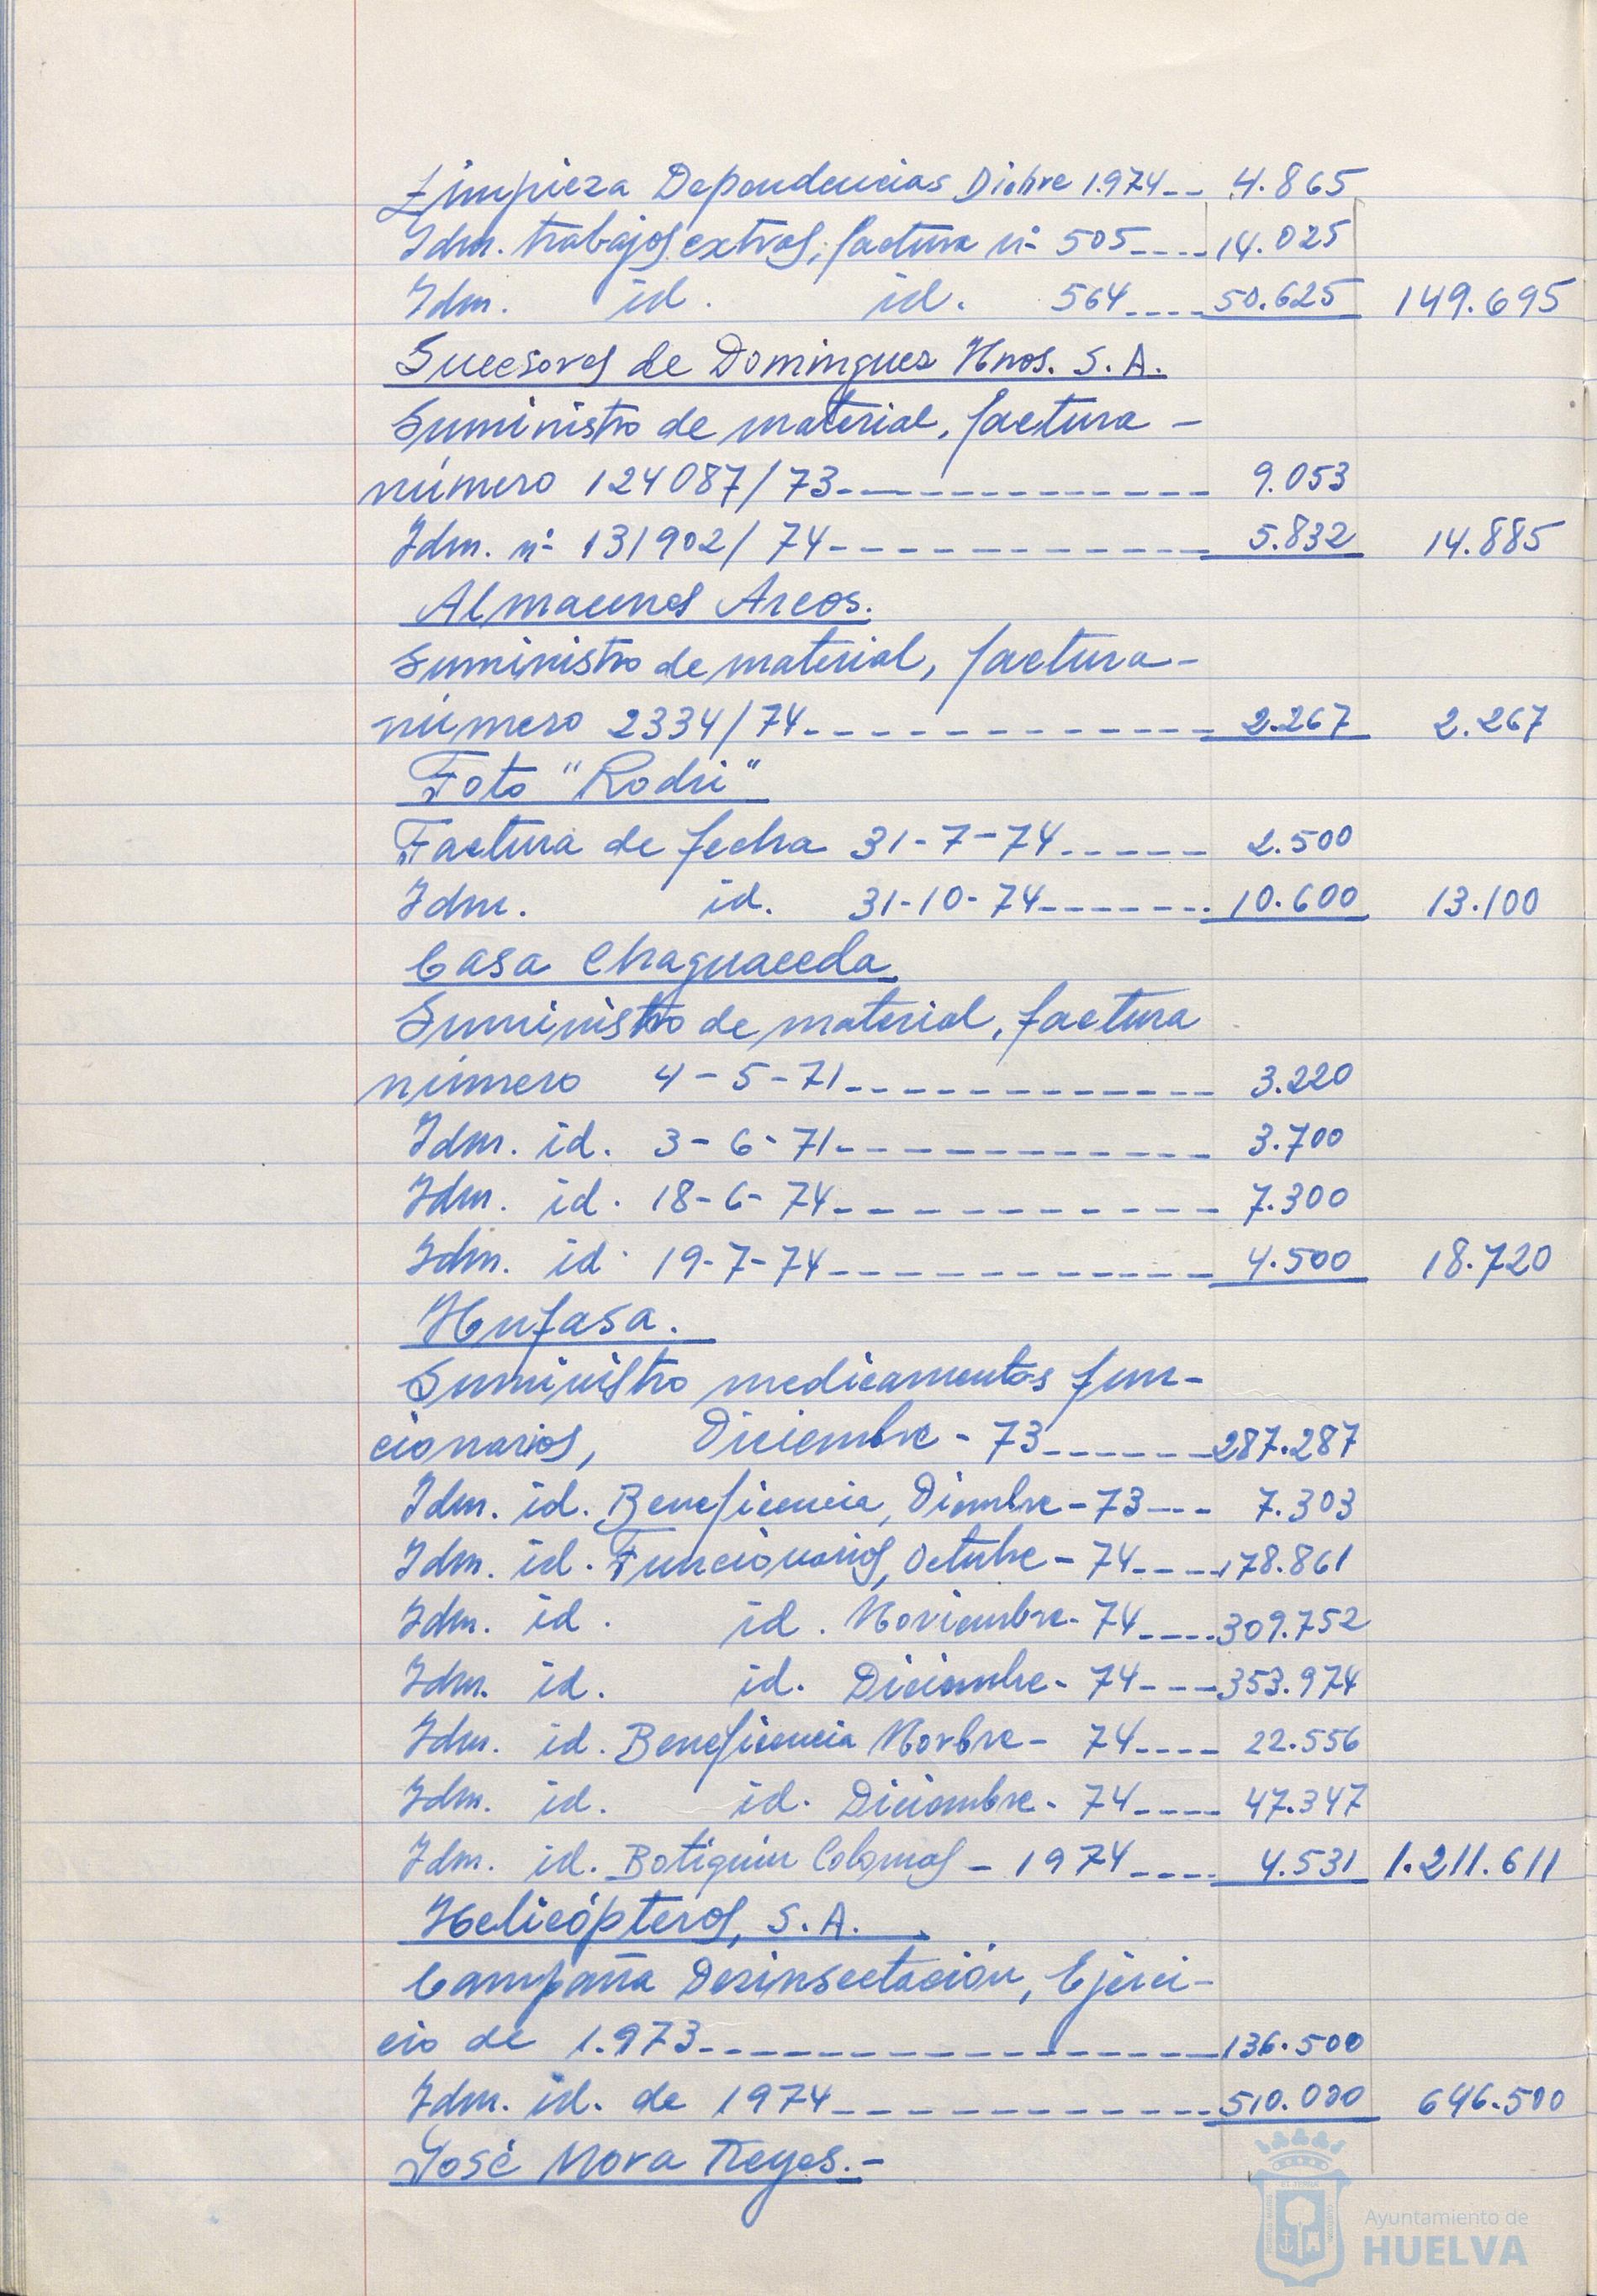 Limpieza Dependencias Dicbre 1.974-- 4.865
Idm. trabajos extras, factura nº 505---- 14.025
Idm. id. id. 564---- 50.625 149.695
Sucesores de Dominguez Hnos. S.A.
Suministro de material, factura -
número 124087/73------------ 9.053
Idm. nº 131902/74------------ 5.832 14.885
Almacenes Arcos.
Suministro de material, factura-
número 2334/74------------- 2.267 2.267
Foto "Rodri"
Factura de fecha 31-7-74----- 2.500
Idm. id. 31-10-74------- 10.600 13.100
Casa Chaguaceda
Suministro de material, factura
número 4-5-71------------ 3.220
Idm. id. 3-6-71------------ 3.700
Idm. id. 18-6-74------------ 7.300
Idm. id. 19-7-74------------ 4.500 18.720
Hufasa.
Suministro medicamentos fun-
cionarios, Diciembre-73------ 287.287
Idm. id. Beneficencia, Diembre-73--- 7.303
Idm. id. Funcionarios, Octubre-74---- 178.861
Idm. id. id. Noviembre-74---- 309.752
Idm. id. id. Diciembre-74---- 353.974
Idm. id. Beneficencia Novbre-74---- 22.556
Idm. id. id. Diciembre-74---- 47.347
Idm. id. Botiquin Colonias-1974---- 4.531 1.211.611
Helicópteros, S.A.
Campaña Desinsectación, Ejerci-
cio de 1.973------------------ 136.500
Idm. id. de 1974-------------- 510.000 646.500
José Mora Reyes.-
Ayuntamiento de
HUELVA